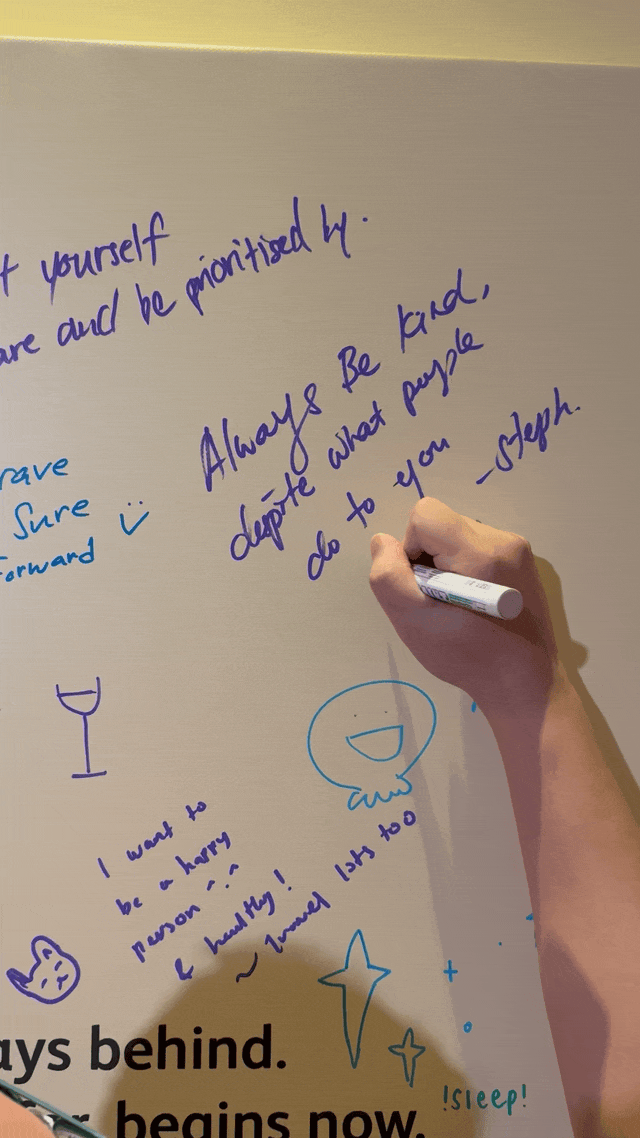 yourself
and be prioritised by.
Always Be kind,
despite what people
do to you
-Steph.
rave
Sure
forward
I want to
be a happy
person ^.^
& healthy!
~ travel lots too
ays behind.
begins now.
!sleep!